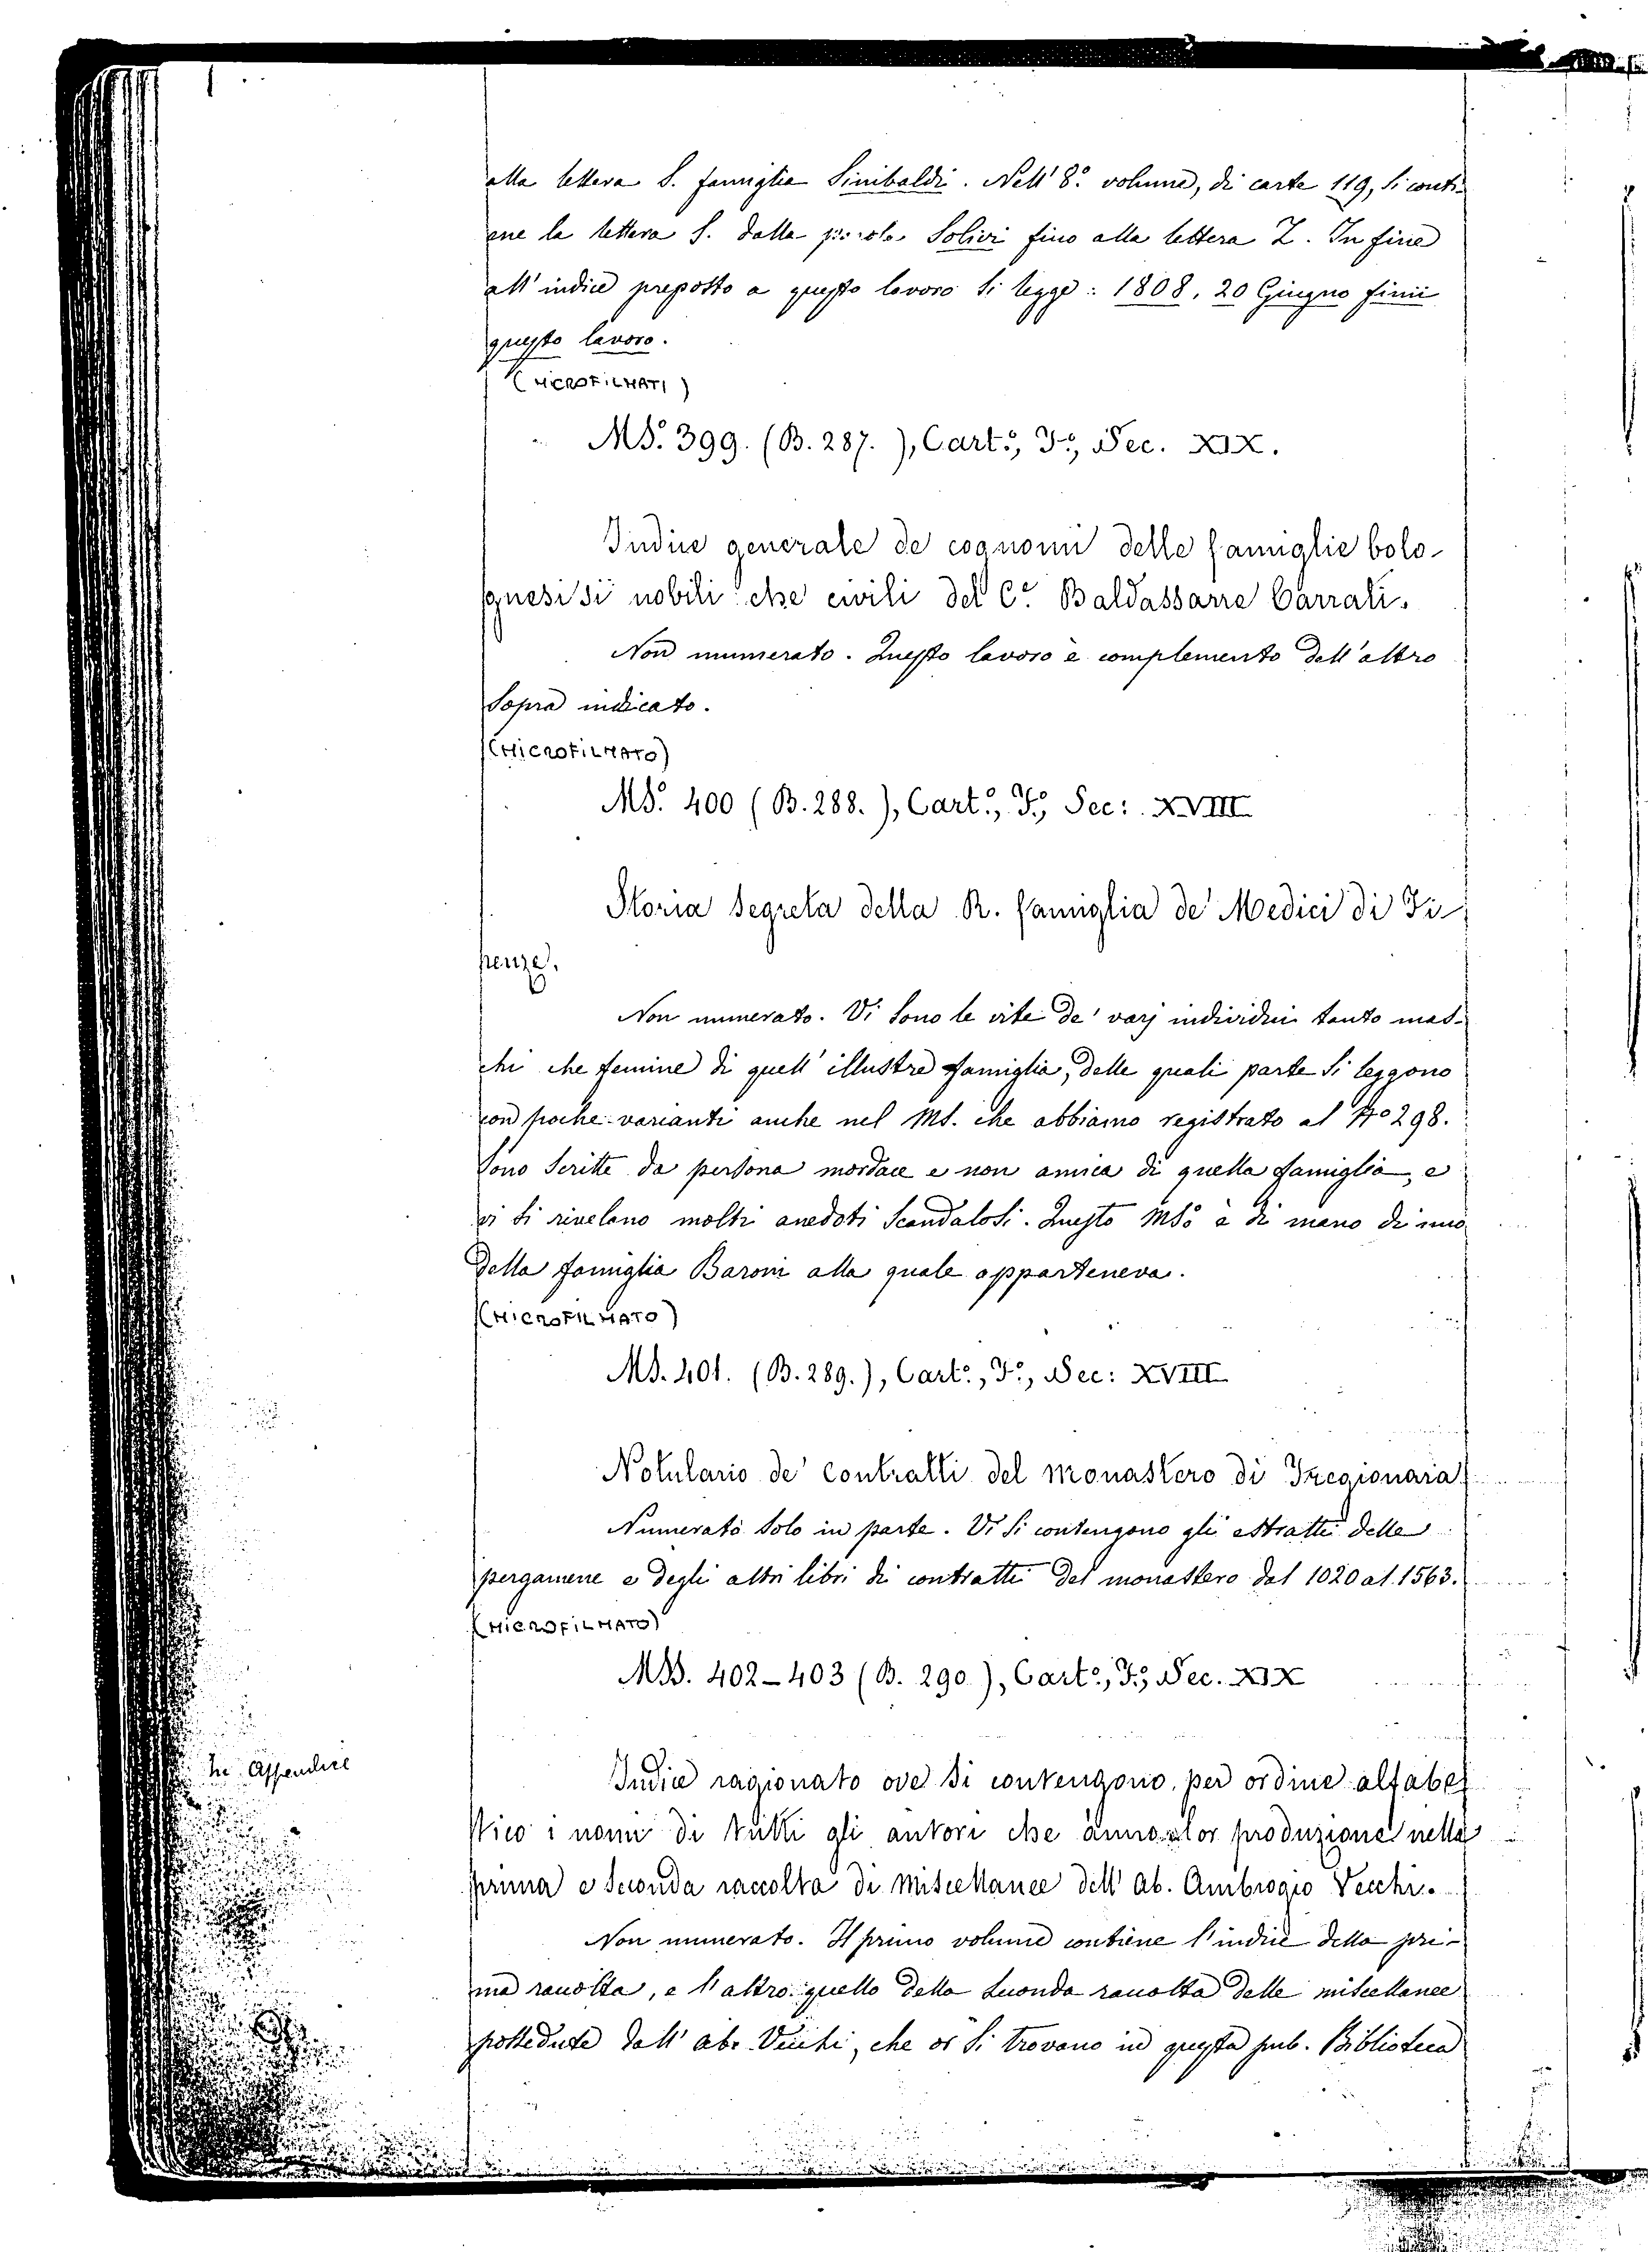 alla lettera S. famiglia Sinibaldi. Nell' 8.º volume, di carte 119, si conti-
ene la lettera S. dalla parola Solivi fino alla lettera Z. In fine
all' indice preposto a questo lavoro si legge: 1808. 20 Giugno finii
questo lavoro.
(MICROFILMATI)
MS. 399. (B. 287.), Cart.º, F.º, Sec. XIX.
Indice generale de cognomi delle famiglie bolo-
gnesi sì nobili che civili del C.e Baldassarre Carrati.
Non numerato. Questo lavoro è complemento dell' altro
sopra indicato.
(MICROFILMATO)
MS. 400 (B. 288.), Cart.º, F.º, Sec: XVIII
Storia segreta della R. famiglia de' Medici di Fi
renze.
Non numerato. Vi sono le vite de' varj individui tanto mas-
chi che femine di quell' illustre famiglia, delle quali parte si leggono
con poche varianti anche nel Ms. che abbiamo registrato al Nº 298.
Sono scritte da persona mordace e non amica di quella famiglia, e
vi si rivelano molti anedoti scandalosi. Questo MSº è di mano di uno
della famiglia Baroni alla quale apparteneva.
(MICROFILMATO)
MS. 401. (B. 289.), Cart.º, F.º, Sec: XVIII
Notulario de' contratti del monastero di Fregionara
Numerato solo in parte. Vi si contengono gli estratti delle
pergamene e degli altri libri di contratti del monastero dal 1020 al 1563.
(MICROFILMATO)
MSS. 402-403 (B. 290.), Cart.º, F.º, Sec. XIX
In Appendice
Indice ragionato ove si contengono, per ordine alfabe
tico i nomi di tutti gli autori che ànno lor produzione nella
prima e seconda raccolta di miscellanee dell' Ab. Ambrogio Vecchi.
Non numerato. Il primo volume contiene l' indice della pri-
ma raccolta, e l' altro quello della seconda raccolta delle miscellanee
possedute dall' ab. Vecchi, che or si trovano in questa pub. Biblioteca